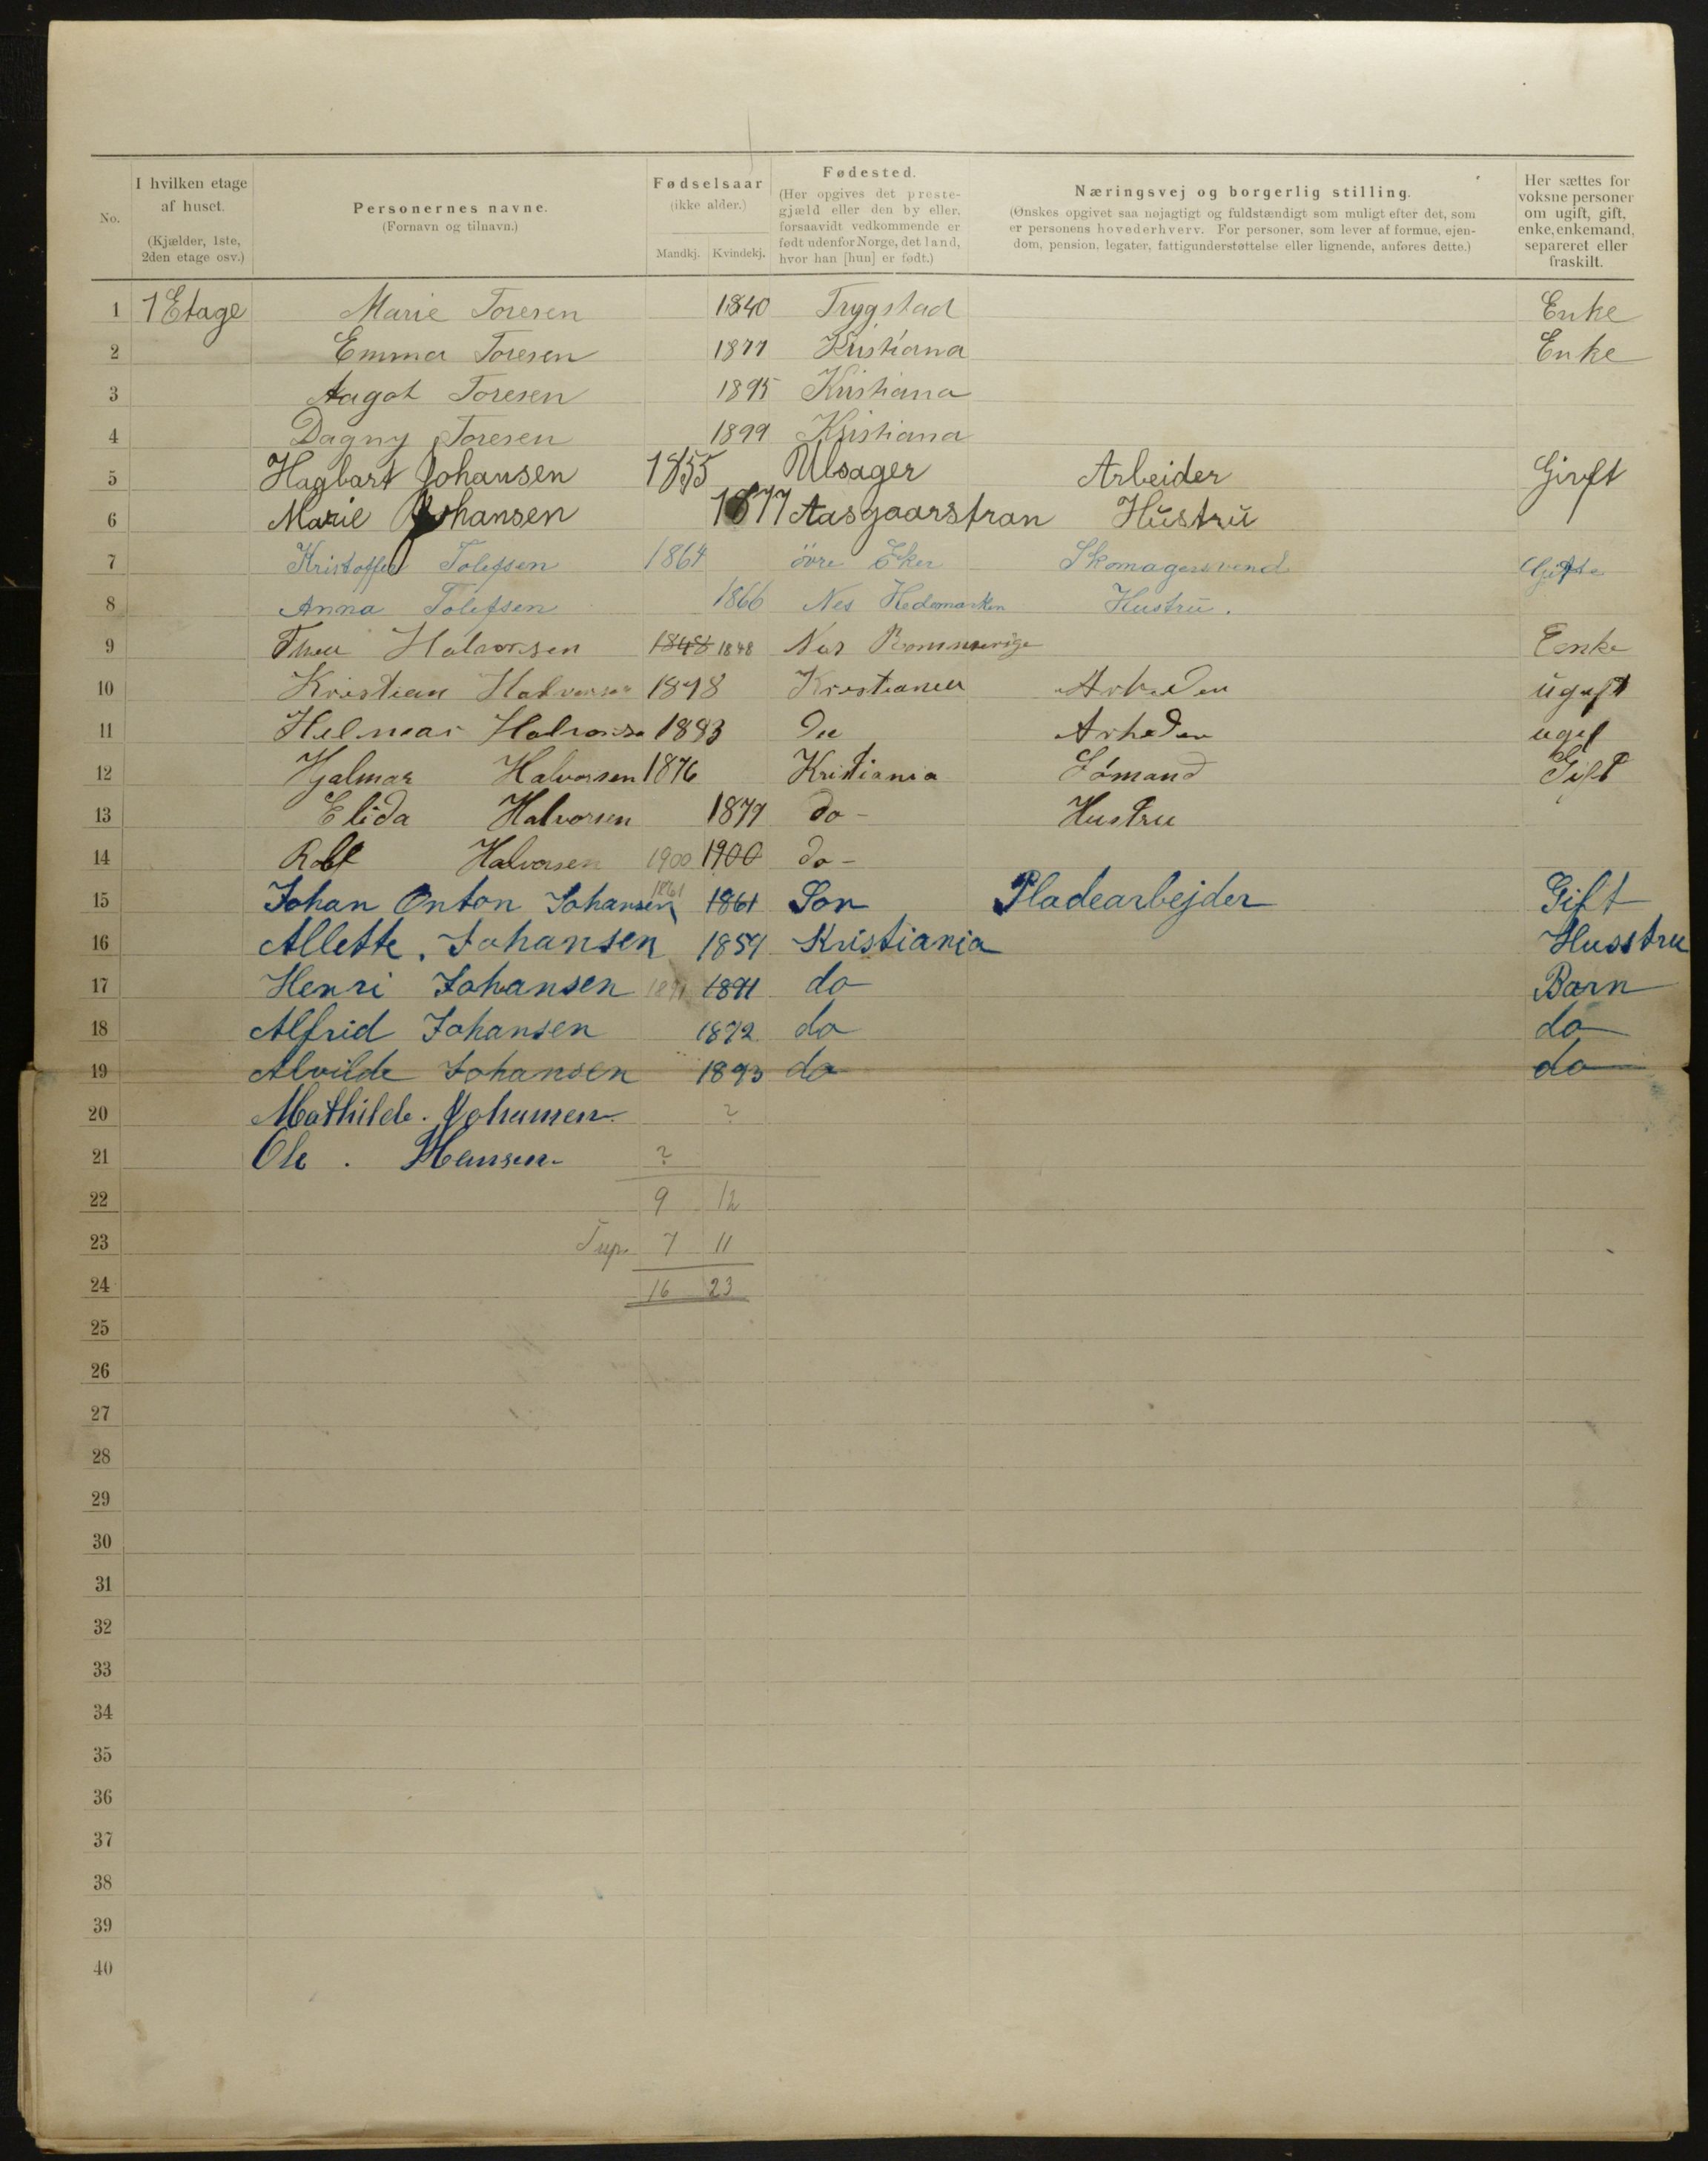 No.
I hvilken etage af huset. (Kjælder, 1ste, 2den etage osv.)
Personernes navne. (Fornavn og tilnavn.)
Fødselsaar (ikke alder.)
Mandkj. Kvindekj.
Fødested. (Her opgives det prestegjæld eller den by eller, forsaavidt vedkommende er født udenfor Norge, det land, hvor han [hun] er født.)
Næringsvej og borgerlig stilling. (Ønskes opgivet saa nøjagtigt og fuldstændigt som muligt efter det, som er personens hovederhverv. For personer, som lever af formue, ejendom, pension, legater, fattigunderstøttelse eller lignende, anføres dette.)
Her sættes for voksne personer om ugift, gift, enke, enkemand, separeret eller fraskilt.
1 1 Etage Marie Toresen 1840 Trygstad Enke
2 Emma Toresen 1877 Kristiana Enke
3 Aagot Toresen 1895 Kristiana
4 Dagny Toresen 1899 Kristiana
5 Hagbart Johansen 1855 Ulsager Arbeider Givft
6 Marie Johansen 1877 Aasgaarstran Hustru
7 Kristoffer Tolefsen 1864 övre Eker Skomagersvend Gifte
8 Anna Tolefsen 1866 Nes Hedemarken Hustru.
9 Thea Halvorsen 1848 1848 Nes Rommerige Enke
10 Kristian Halvorsen 1878 Kristiania Arbeder ugift
11 Helmar Halvorse 1883 Do Arbeder ugif
12 Hjalmar Halvorsen 1876 Kristiania Sømand Gift
13 Elida Halvorsen 1877 do - Hustru
14 Rolf Halvorsen 1900 1900 do -
15 Johan Anton Johansen 1861 1861 Son Pladearbejder Gift
16 Allette. Johansen 1859 Kristiania Husstru
17 Henri Johansen 1891 1891 do Barn
18 Alfrid Johansen 1892 do do
19 Alvilde Johansen 1893 do do
20 Mathilde. Johansen ?
21 Ole . Hansen ?
22 9 12
23 7 11
24 16 23
25
26
27
28
29
30
31
32
33
34
35
36
37
38
39
40